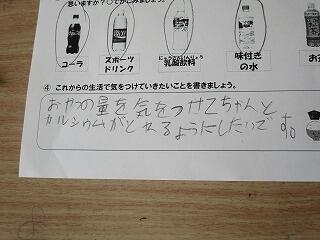 思いますか？○でかこみましょう。
コーラ
スポーツ
ドリンク
にゅうさんいんりょう
乳酸飲料
味付き
の水
お茶
④ これからの生活で気をつけていきたいことを書きましょう。
おやつの量を気をつけてちゃんと
カルシウムがとれるようにしたいです。